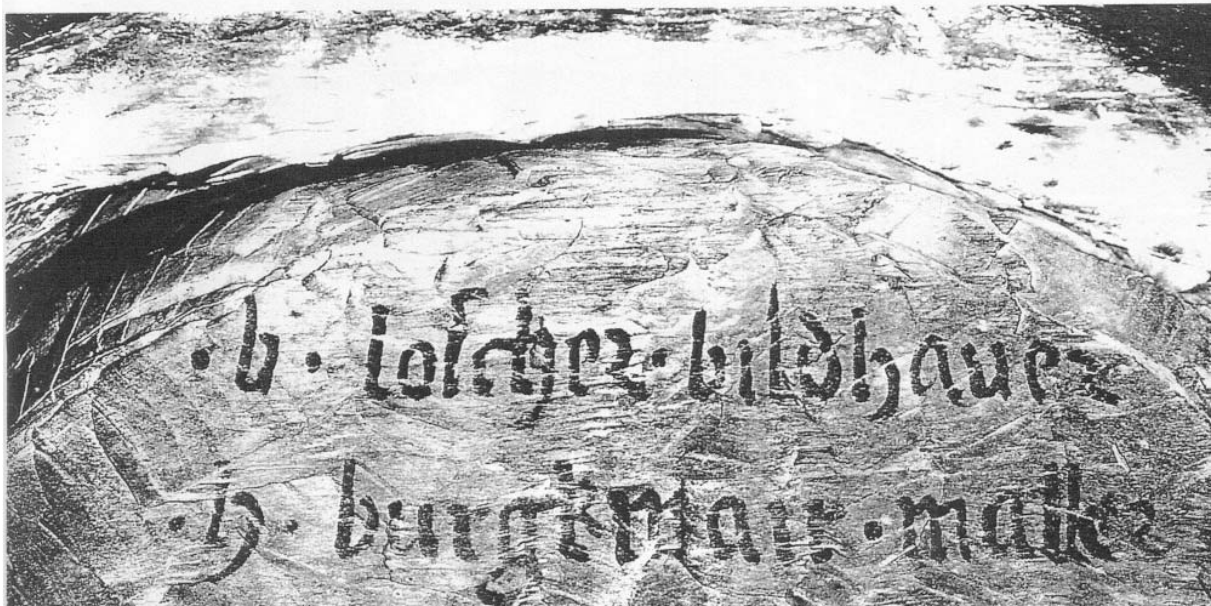 ·b· loscher·bildhauer
·h· burgkmair·maller